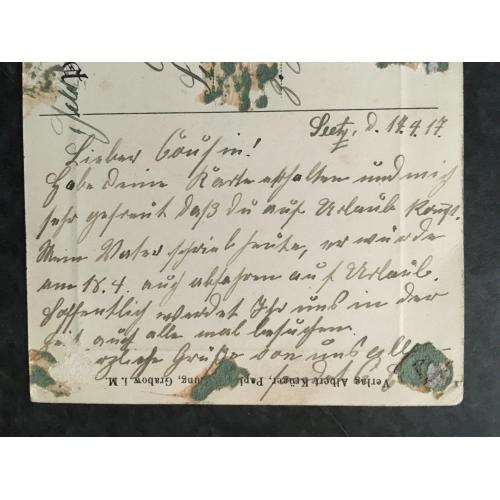 Seetz, d. 14.4.17.
Lieber Cousin!
Habe deine Karte erhalten und mich
sehr gefreut daß du auf Urlaub komst.
Mein Vater schrieb heute, er würde
am 18.4. auch abfahren auf Urlaub.
Hoffentlich werdet Ihr uns in der
Zeit auch alle mal besuchen.
Grüße von uns
Verlag Albert Krüger, Grabow, i. M.